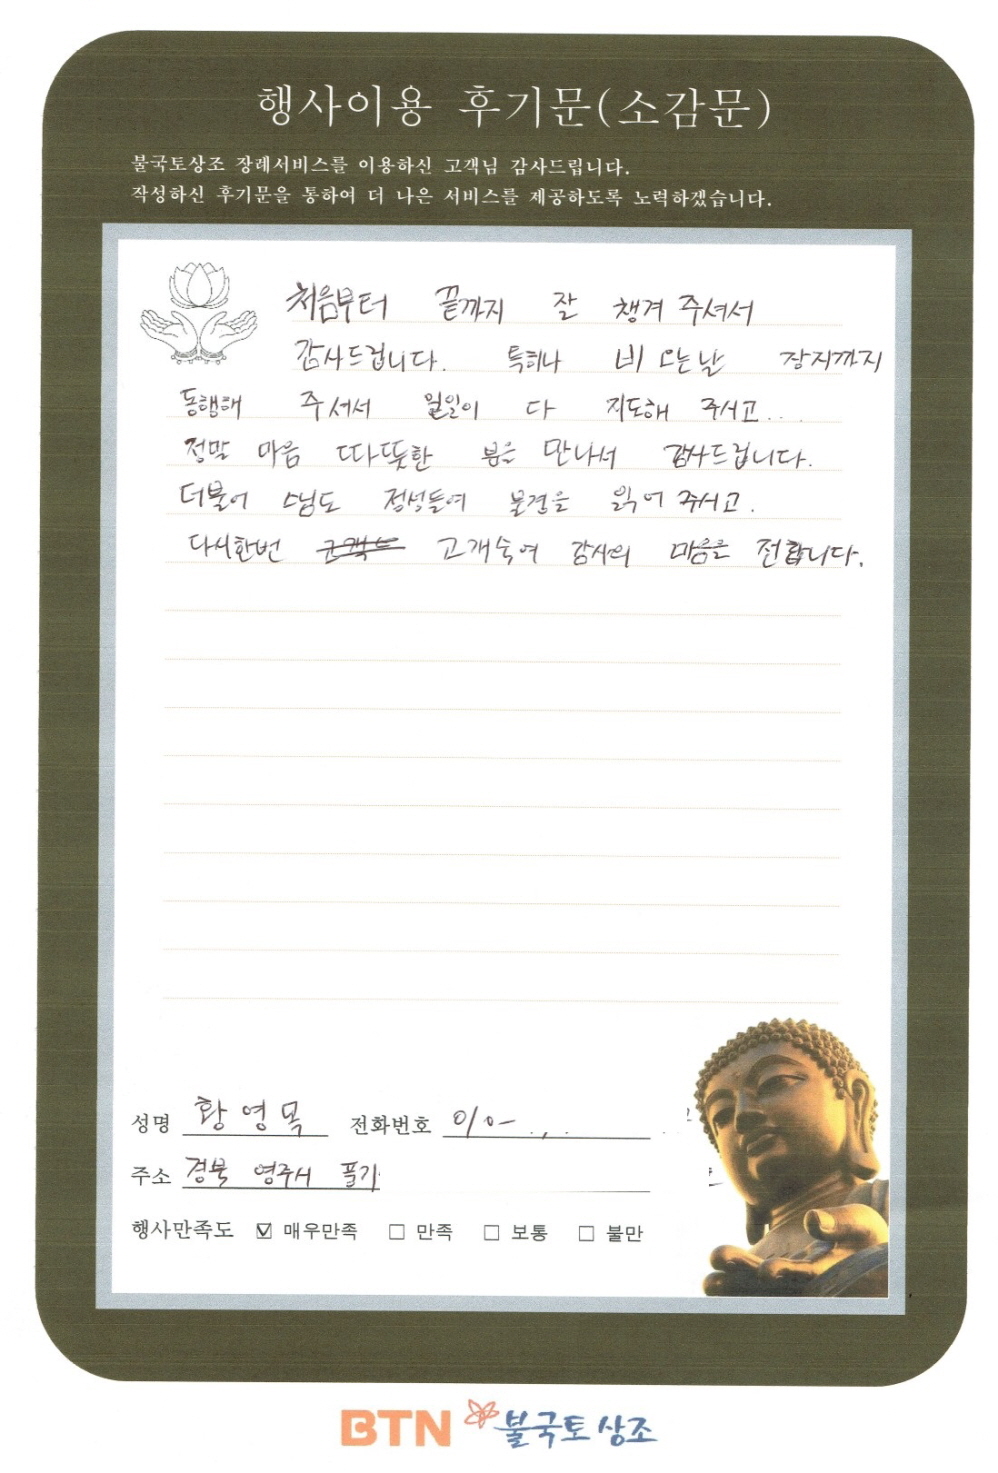 행사이용 후기문(소감문)
불국토상조 장례서비스를 이용하신 고객님 감사드립니다.
작성하신 후기문을 통하여 더 나은 서비스를 제공하도록 노력하겠습니다.
처음부터 끝까지 잘 챙겨 주셔서
감사드립니다. 특히나 비 오는날 장지까지
동행해 주셔서 일일이 다 지도해 주시고...
정말 마음 따뜻한 분을 만나서 감사드립니다.
더불어 스님도 정성들여 불경을 읽어 주시고.
다시한번 고개숙여 감사의 마음을 전합니다.
성명 황영목 전화번호 010-
주소 경북 영주시 풍기
행사만족도 ☑ 매우만족 □ 만족 □ 보통 □ 불만
BTN 불국토상조